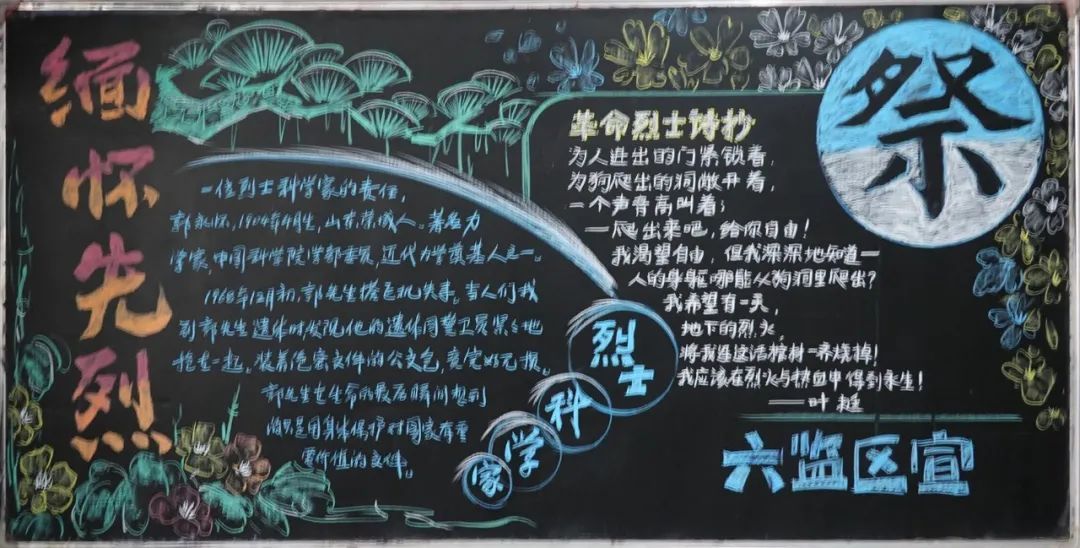 缅怀先烈
一位烈士科学家的责任,
郭永怀,1909年4月生,山东荣成人。著名力
学家,中国科学院学部委员,近代力学奠基人之一。
1968年12月初,郭先生搭飞机失事。当人们找
到郭先生遗体时,发现他的遗体同警卫员紧紧地
抱在一起。装着绝密文件的公文包,竟完好无损。
郭先生在生命的最后瞬间想到
的只是用身体保护对国家有重
要价值的文件。
烈士
科
学
家
革命烈士诗抄
为人进出的门紧锁着,
为狗爬出的洞敞开着,
一个声音高叫着;
—爬出来吧,给你自由!
我渴望自由,但我深深地知道—
人的身躯哪能从狗洞里爬出?
我希望有一天,
地下的烈火,
将我连这活棺材一齐烧掉!
我应该在烈火与热血中得到永生!
——叶挺
祭
六监区宣